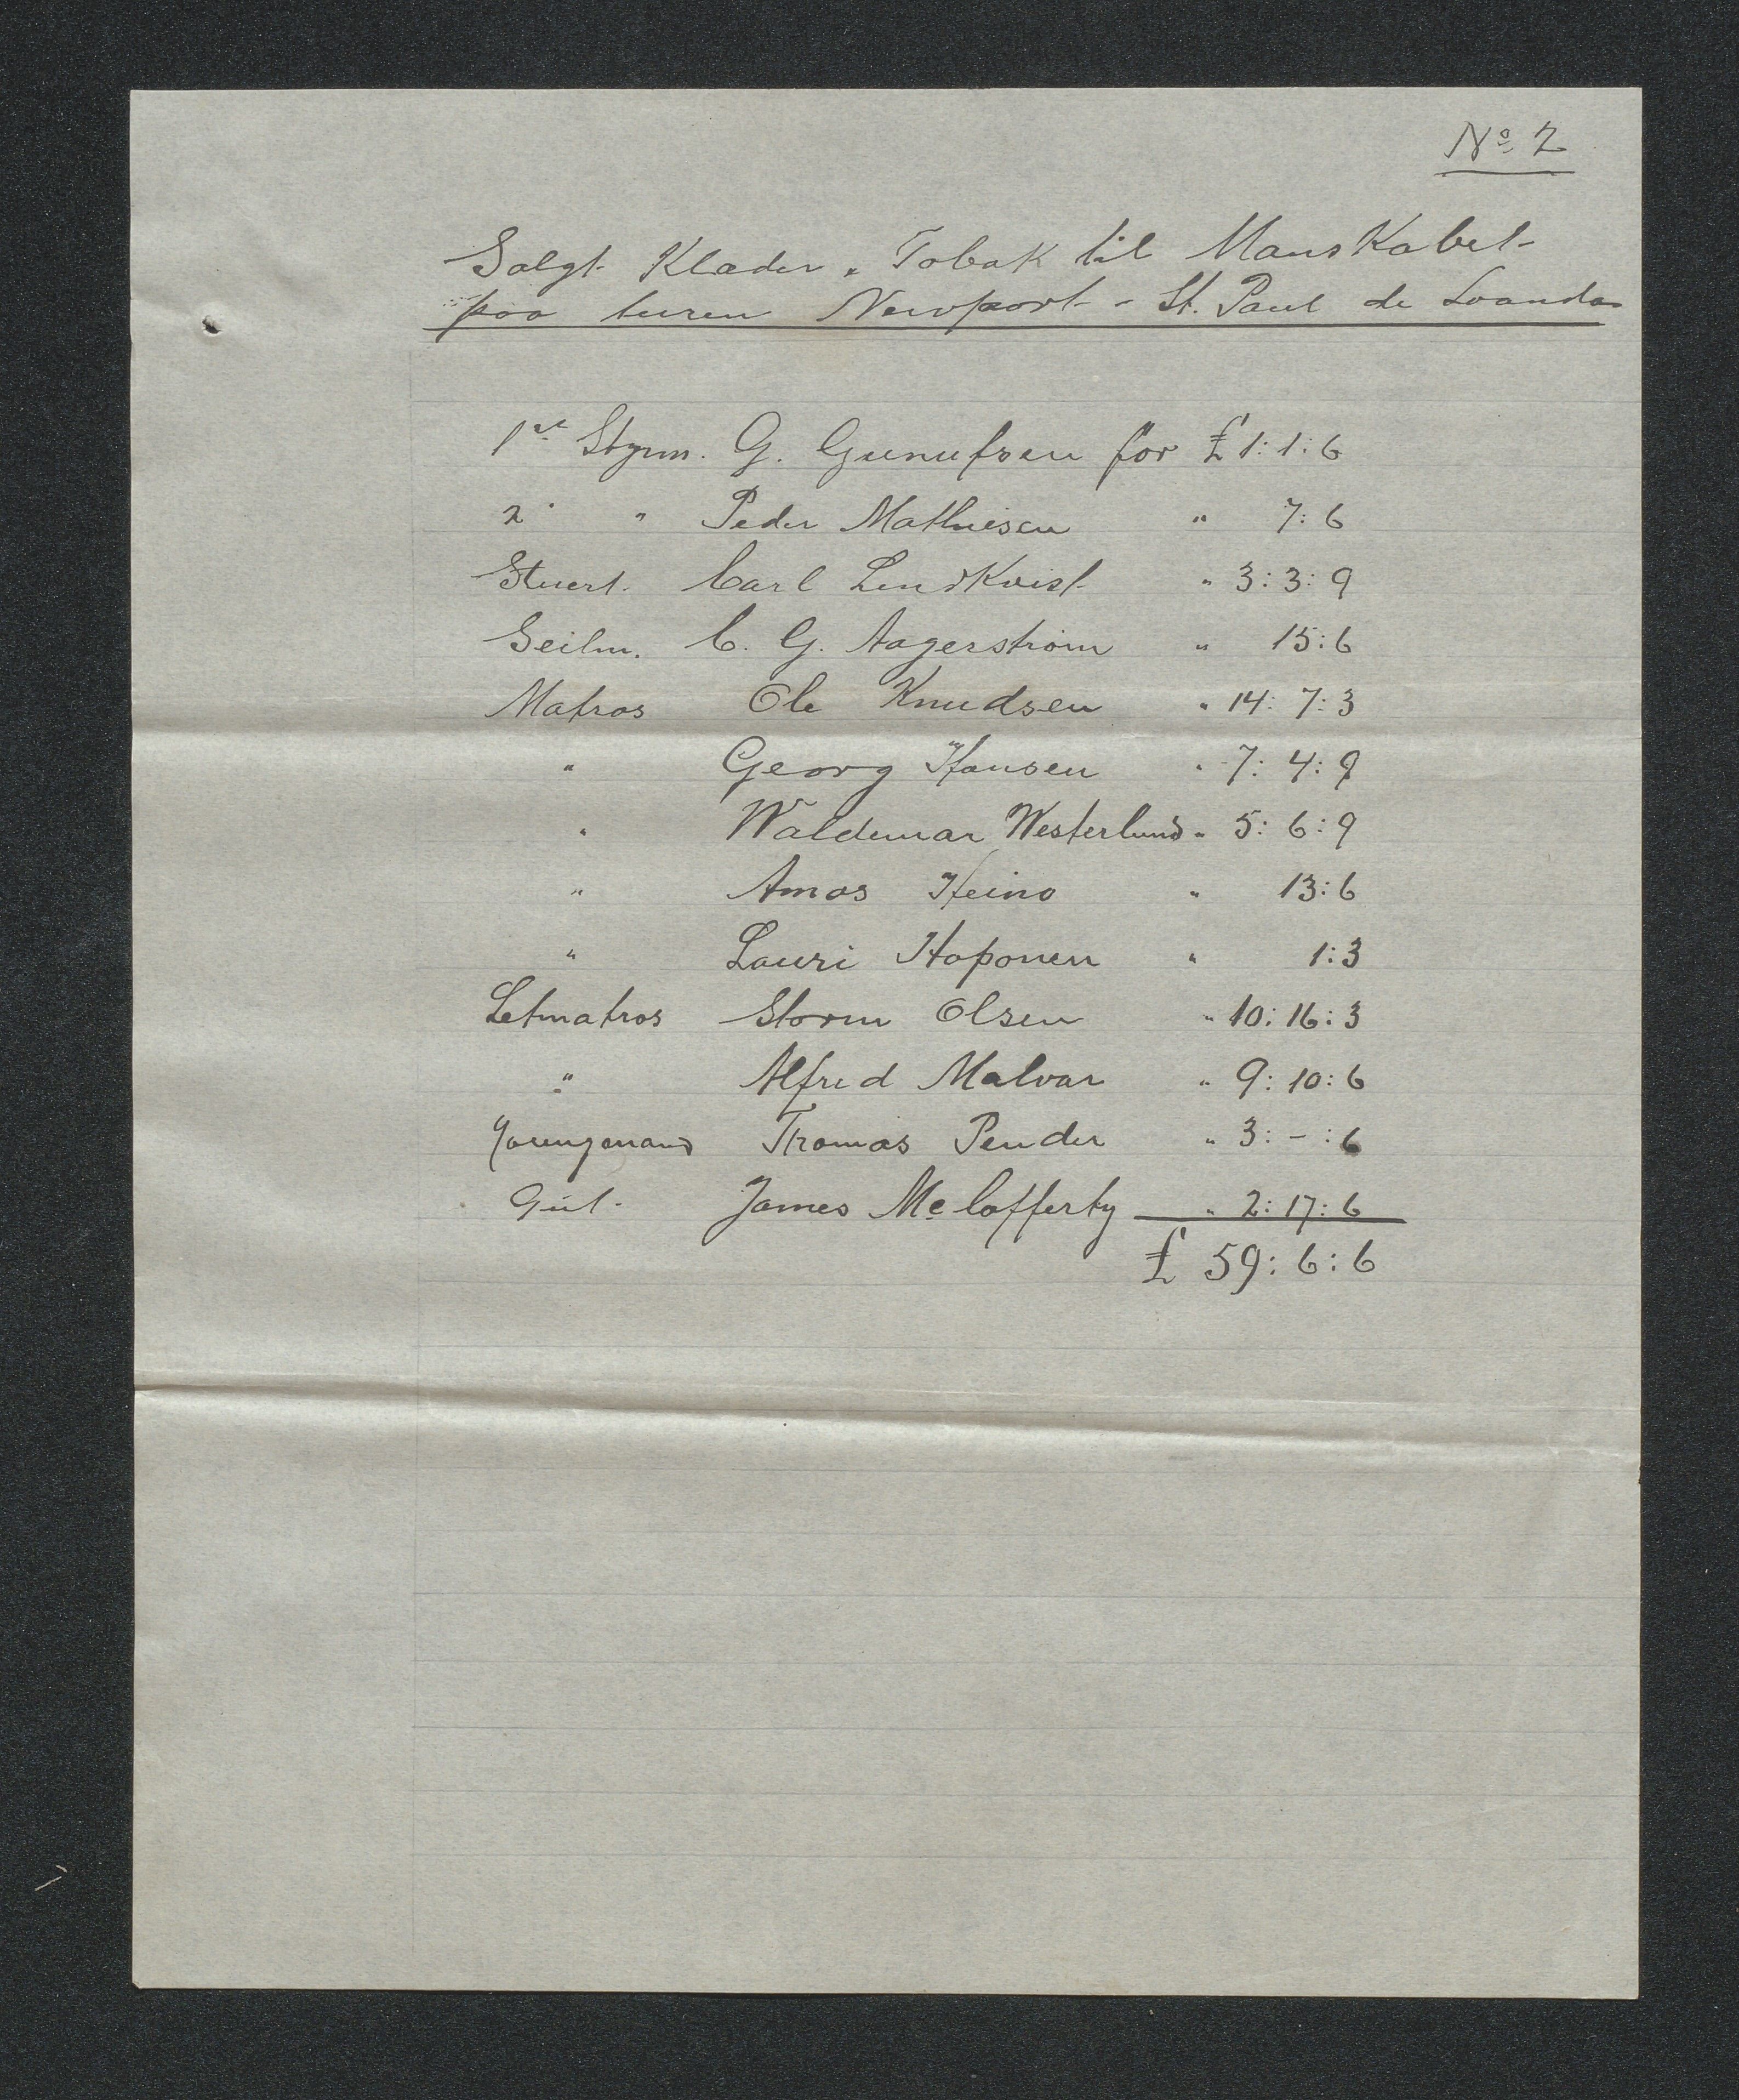 No 2
Solgt Klæder & Tobak til Manskabet
paa turen Newport - St. Paul de Loanda
1st Styrm. G. Gunufsen for £ 1:1:6
2. " Peder Mathiesen " 7:6
Stuert. Carl Lindkvist " 3:3:9
Seilm. C. G. Aagerstrøm " 15:6
Matros Ole Knudsen " 14:7:3
" Georg Hansen " 7:4:9
" Waldemar Westerlund " 5:6:9
" Amos Heino " 13:6
" Lauri Haponen " 1:3
Letmatros Storm Olsen " 10:16:3
" Alfred Malvar " 9:10:6
Joungmand Thomas Pender " 3:-:6
Gut. James McCafferty " 2:17:6
£ 59:6:6